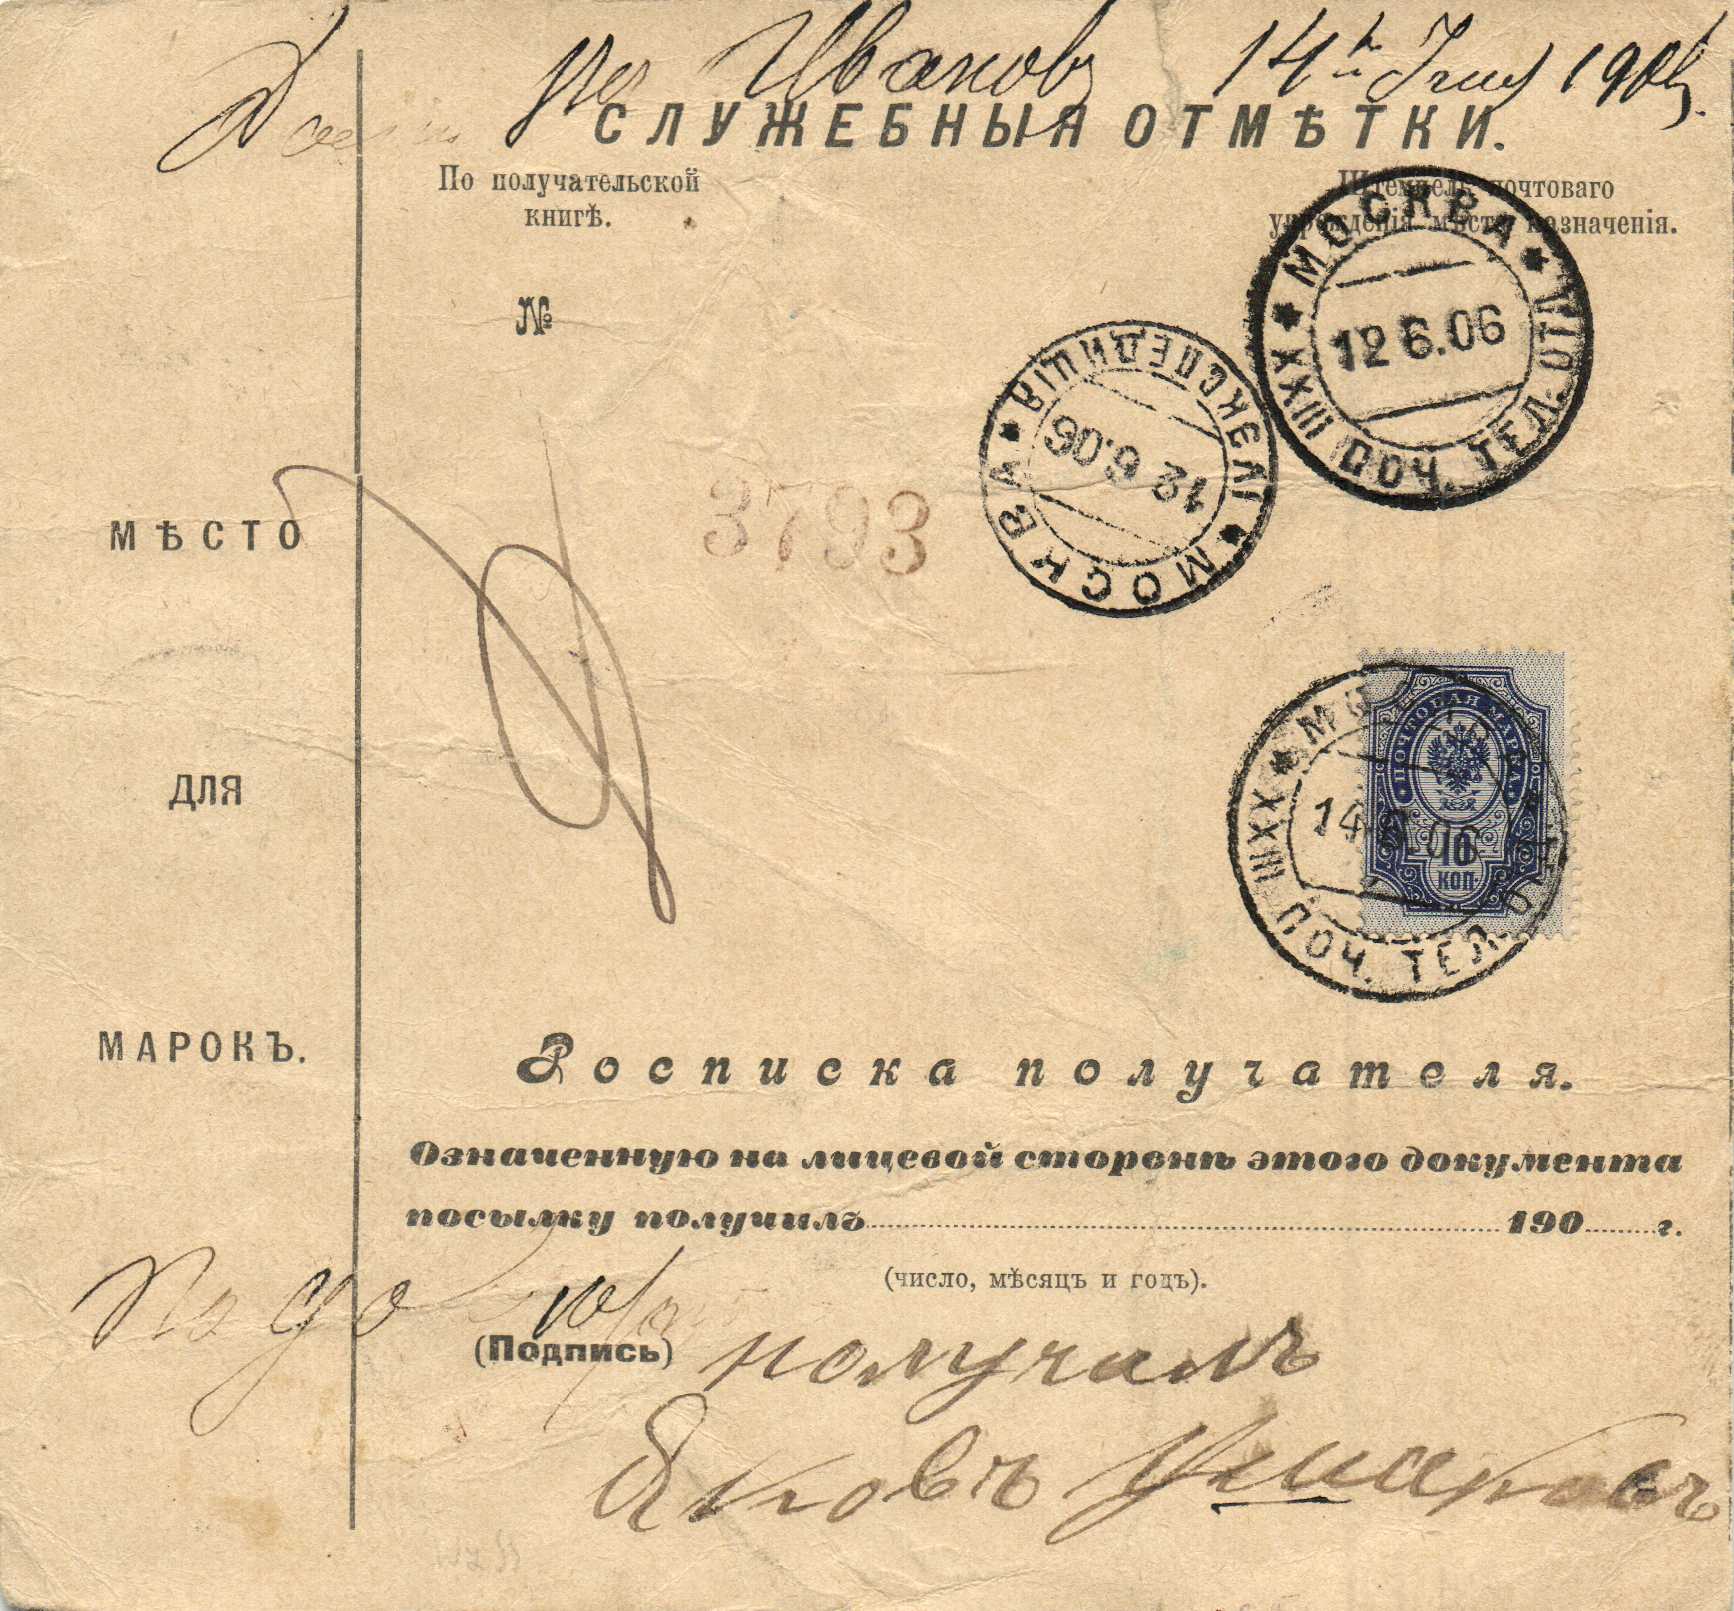 Ивановъ 14го Іюня 1906
СЛУЖЕБНЫЯ ОТМѢТКИ.
По получательской
книгѣ.
Штемпель почтоваго
учрежденія мѣста назначенія.
№
МОСКВА
12 6.06
XXIII ПОЧ. ТЕЛ. ОТД.
IV ЭКСПЕДИЦІЯ
12 6.06
МОСКВА
3793
МѢСТО
ДЛЯ
МАРОКЪ.
ПОЧТОВАЯ МАРКА
10
КОП.
14.6.06
XXIII ПОЧ. ТЕЛ.
Росписка получателя.
Означенную на лицевой сторонѣ этого документа
посылку получилъ 190 г.
(число, мѣсяцъ и годъ).
(Подпись) получалъ
Яковъ Ушаковъ